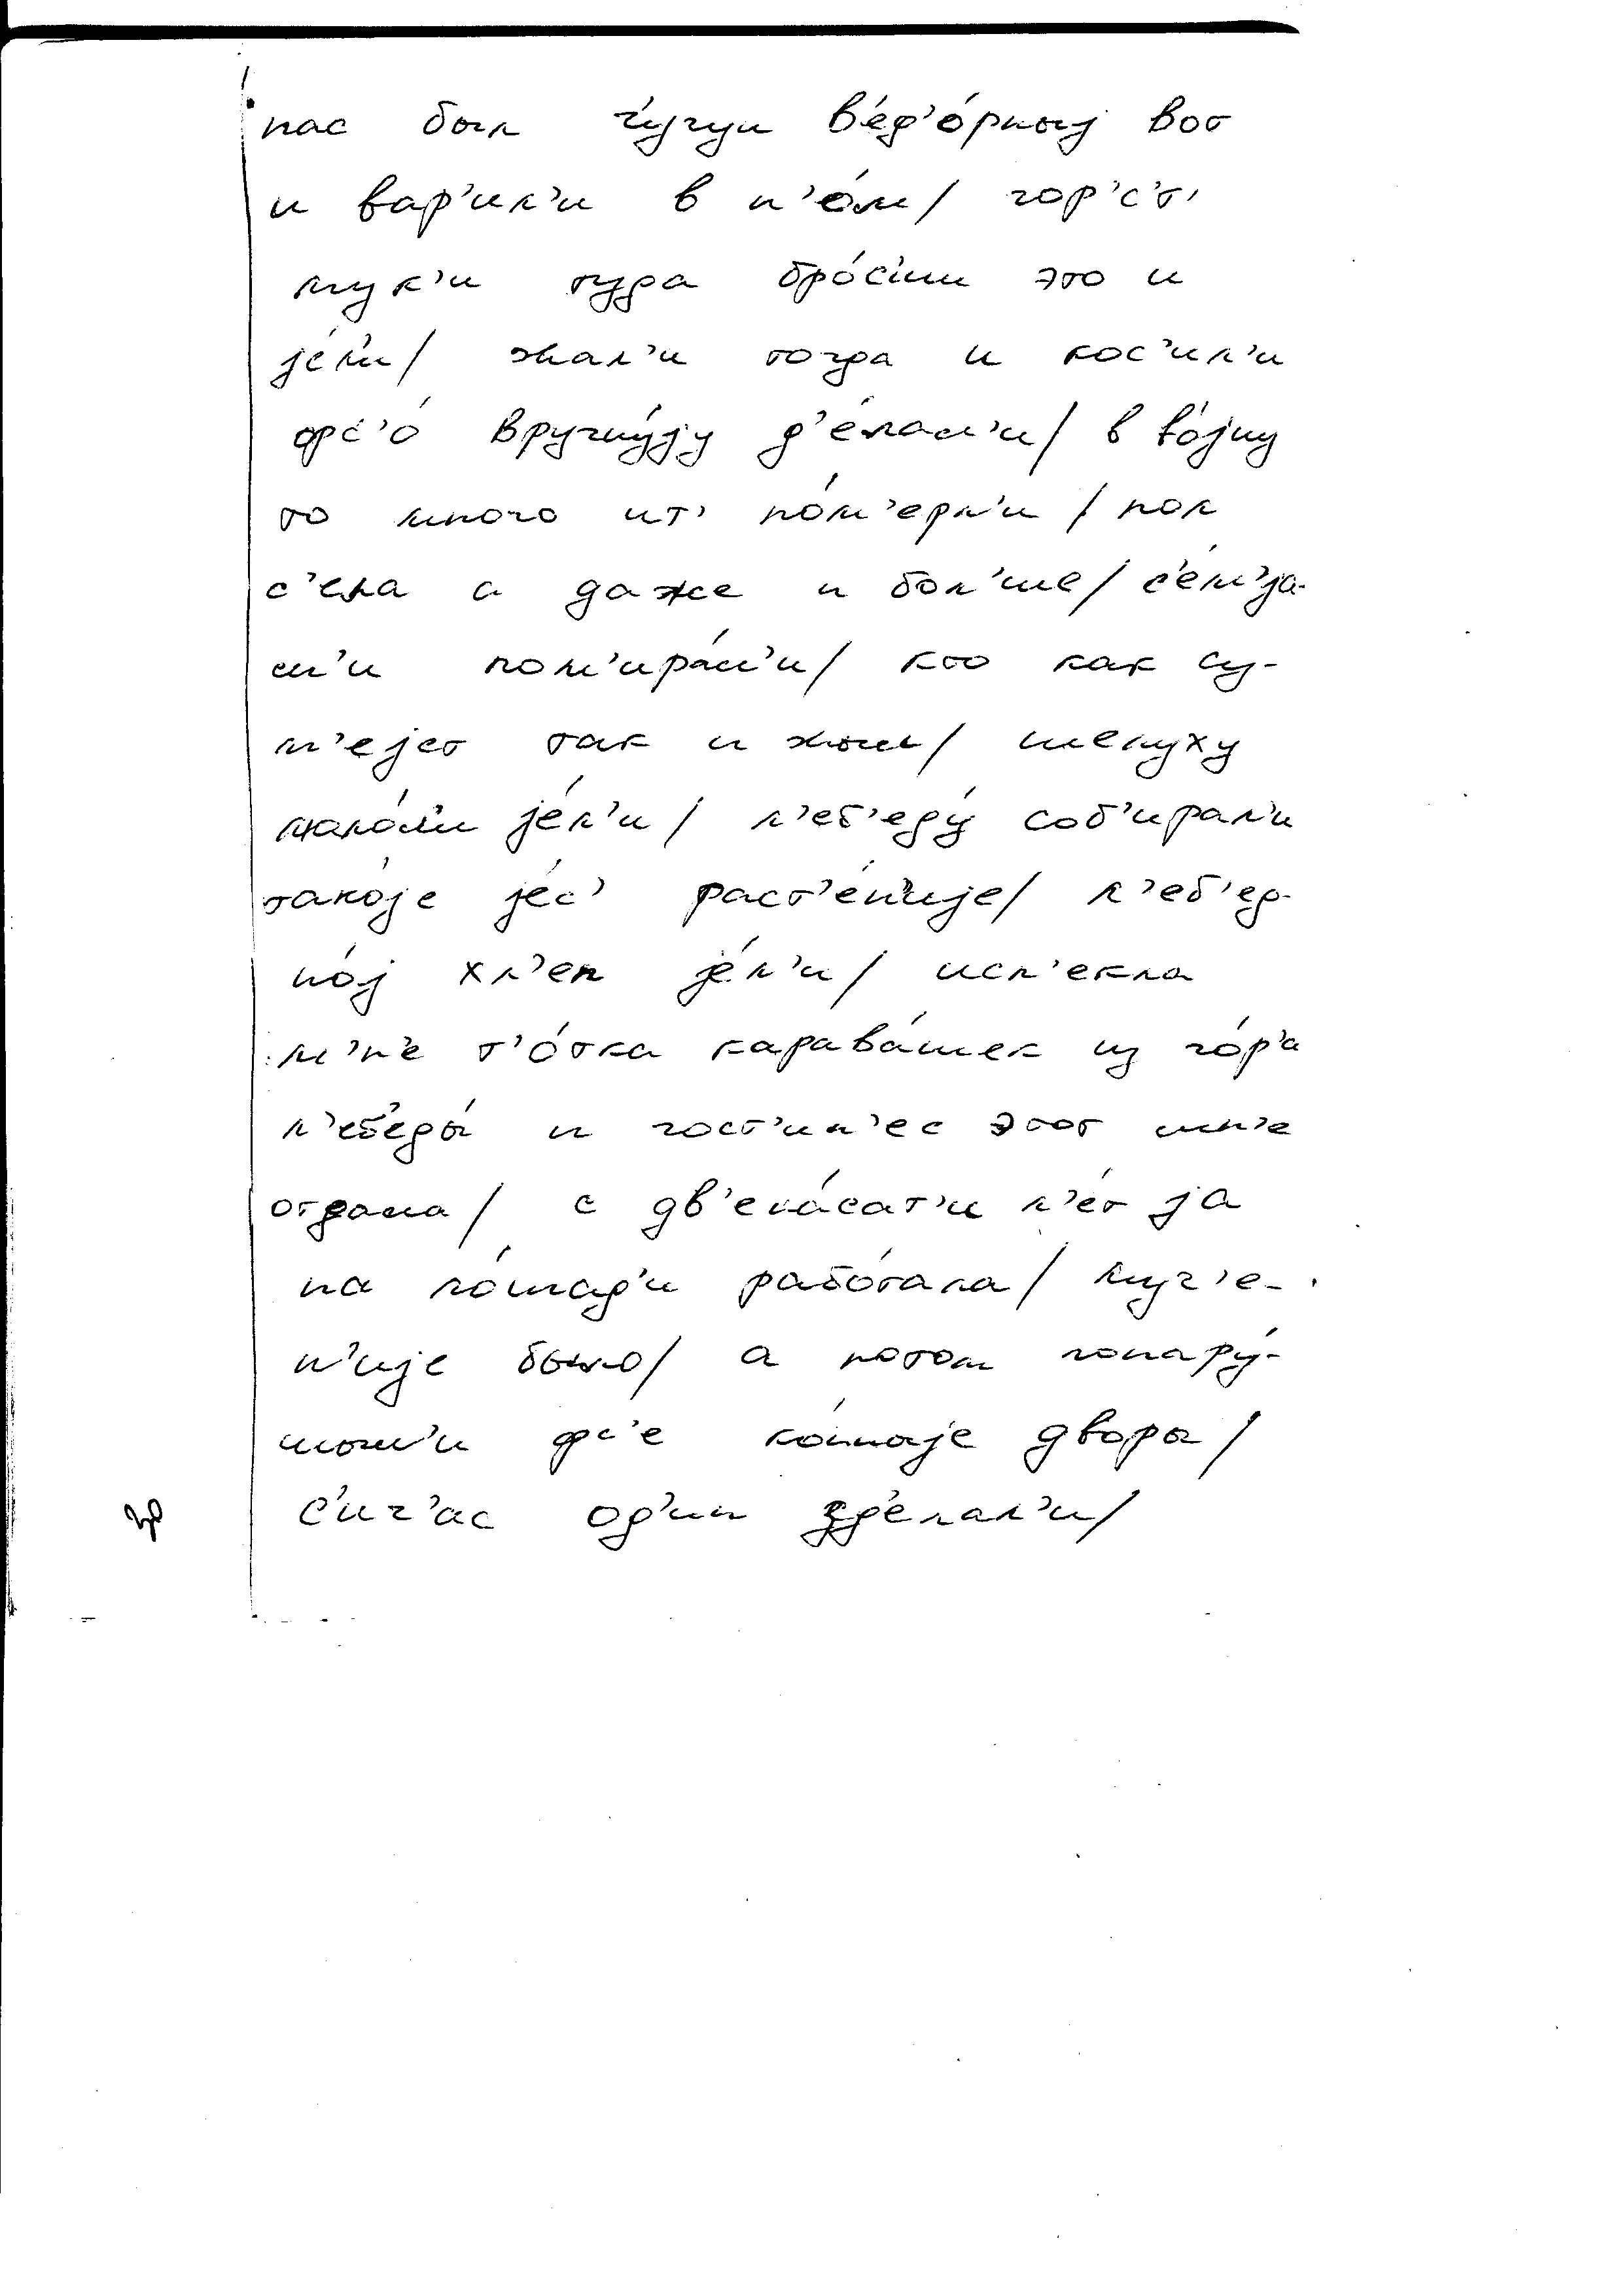 нас был ч'угун в'ед'о́рныј вот
и вар'ил'и в н'о́м/ гор'с'т'
мук'и туда бро́с'им это и
је́л'и/ жал'и тогда и кос'ил'и
фс'о́ вручну́ју д'е́лал'и/ в во́јну
то много ит' по́м'ерл'и/ пол
с'ела а даже и бол'ше/ с'е́м'ја-
м'и пом'ира́л'и/ кто как су-
м'ејет так и жыл/ шелуху
жал'и је́л'и/ л'еб'еду́ соб'ирал'и
тако́је је́с' раст'е́н'ије/ л'еб'ед-
но́ј хл'еп је́л'и/ исп'екла
м'н'е т'о́тка карава́шек из го́р'а
л'еб'еды́ и гост'ин'ес этот мн'е
отдала/ с дв'ена́сат'и л'е́т ја
на ло́шад'и рабо́тала/ муч'е-
н'ије было/ а потом понару́-
шыл'и фс'е ко́нныје дворы/
с'ич'ас од'ин зд'елал'и/